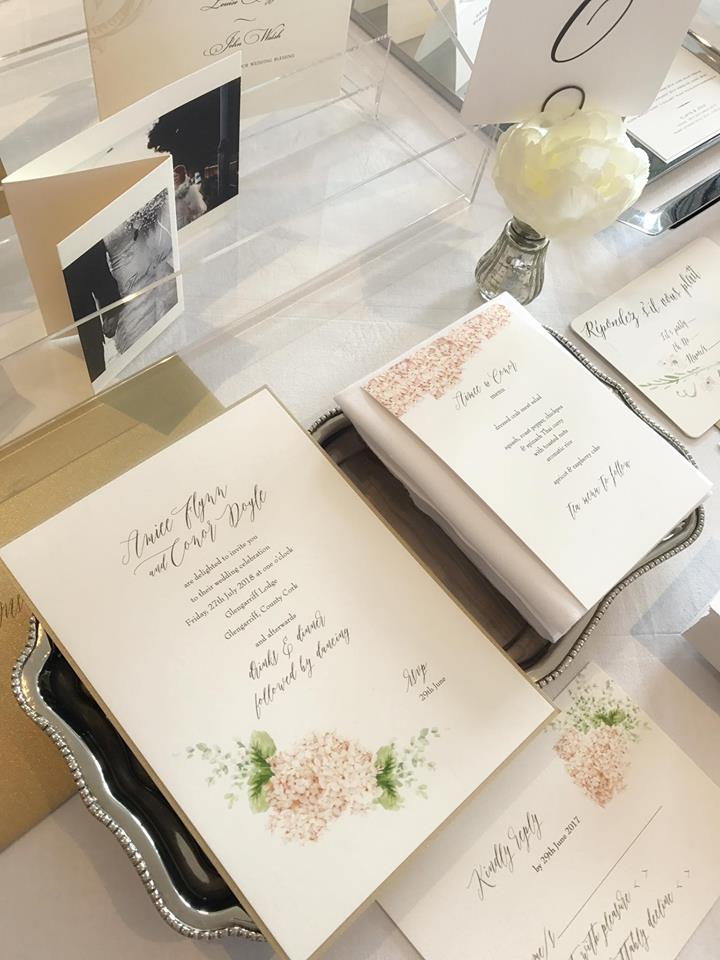 John Walsh
Aimee Flynn
and Conor Doyle
are delighted to invite you
to their wedding celebration
Friday, 27th July 2018 at one o'clock
Glengarriff Lodge
Glengarriff, County Cork
and afterwards
drinks & dinner
followed by dancing
rsvp
29th June
Aimee & Conor
menu
dressed crab meat salad
squash, roast pepper, chickpea
& spinach Thai curry
with toasted nuts
aromatic rice
apricot & raspberry cake
Tea menu to follow
Répondez s'il vous plaît
Kindly reply
by 29th June 2017
with pleasure
decline